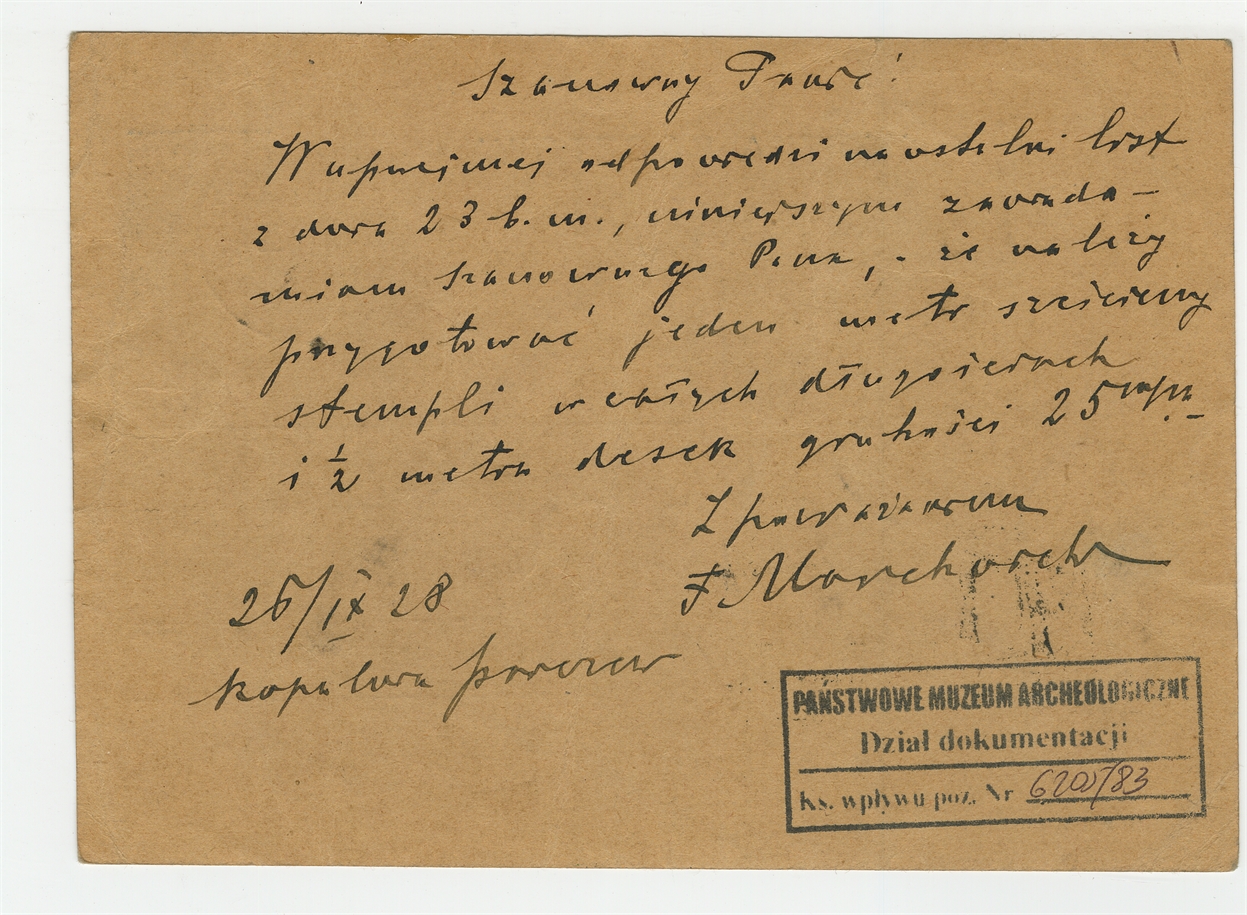 Szanowny Panie!
W uprzejmej odpowiedzi na ostatni list
z dnia 23 b.m., niniejszym zawiada-
miam Szanownego Pana, że należy
przygotować jeden metr sześcienny
stempli w całych długościach
i ½ metra desek grubości 25 m/m
Z poważaniem
F Marchacki
26/IX 28
Kopalnia
PAŃSTWOWE MUZEUM ARCHEOLOGICZNE
Dział dokumentacji
Ks. wpływu poz. Nr 6200/83